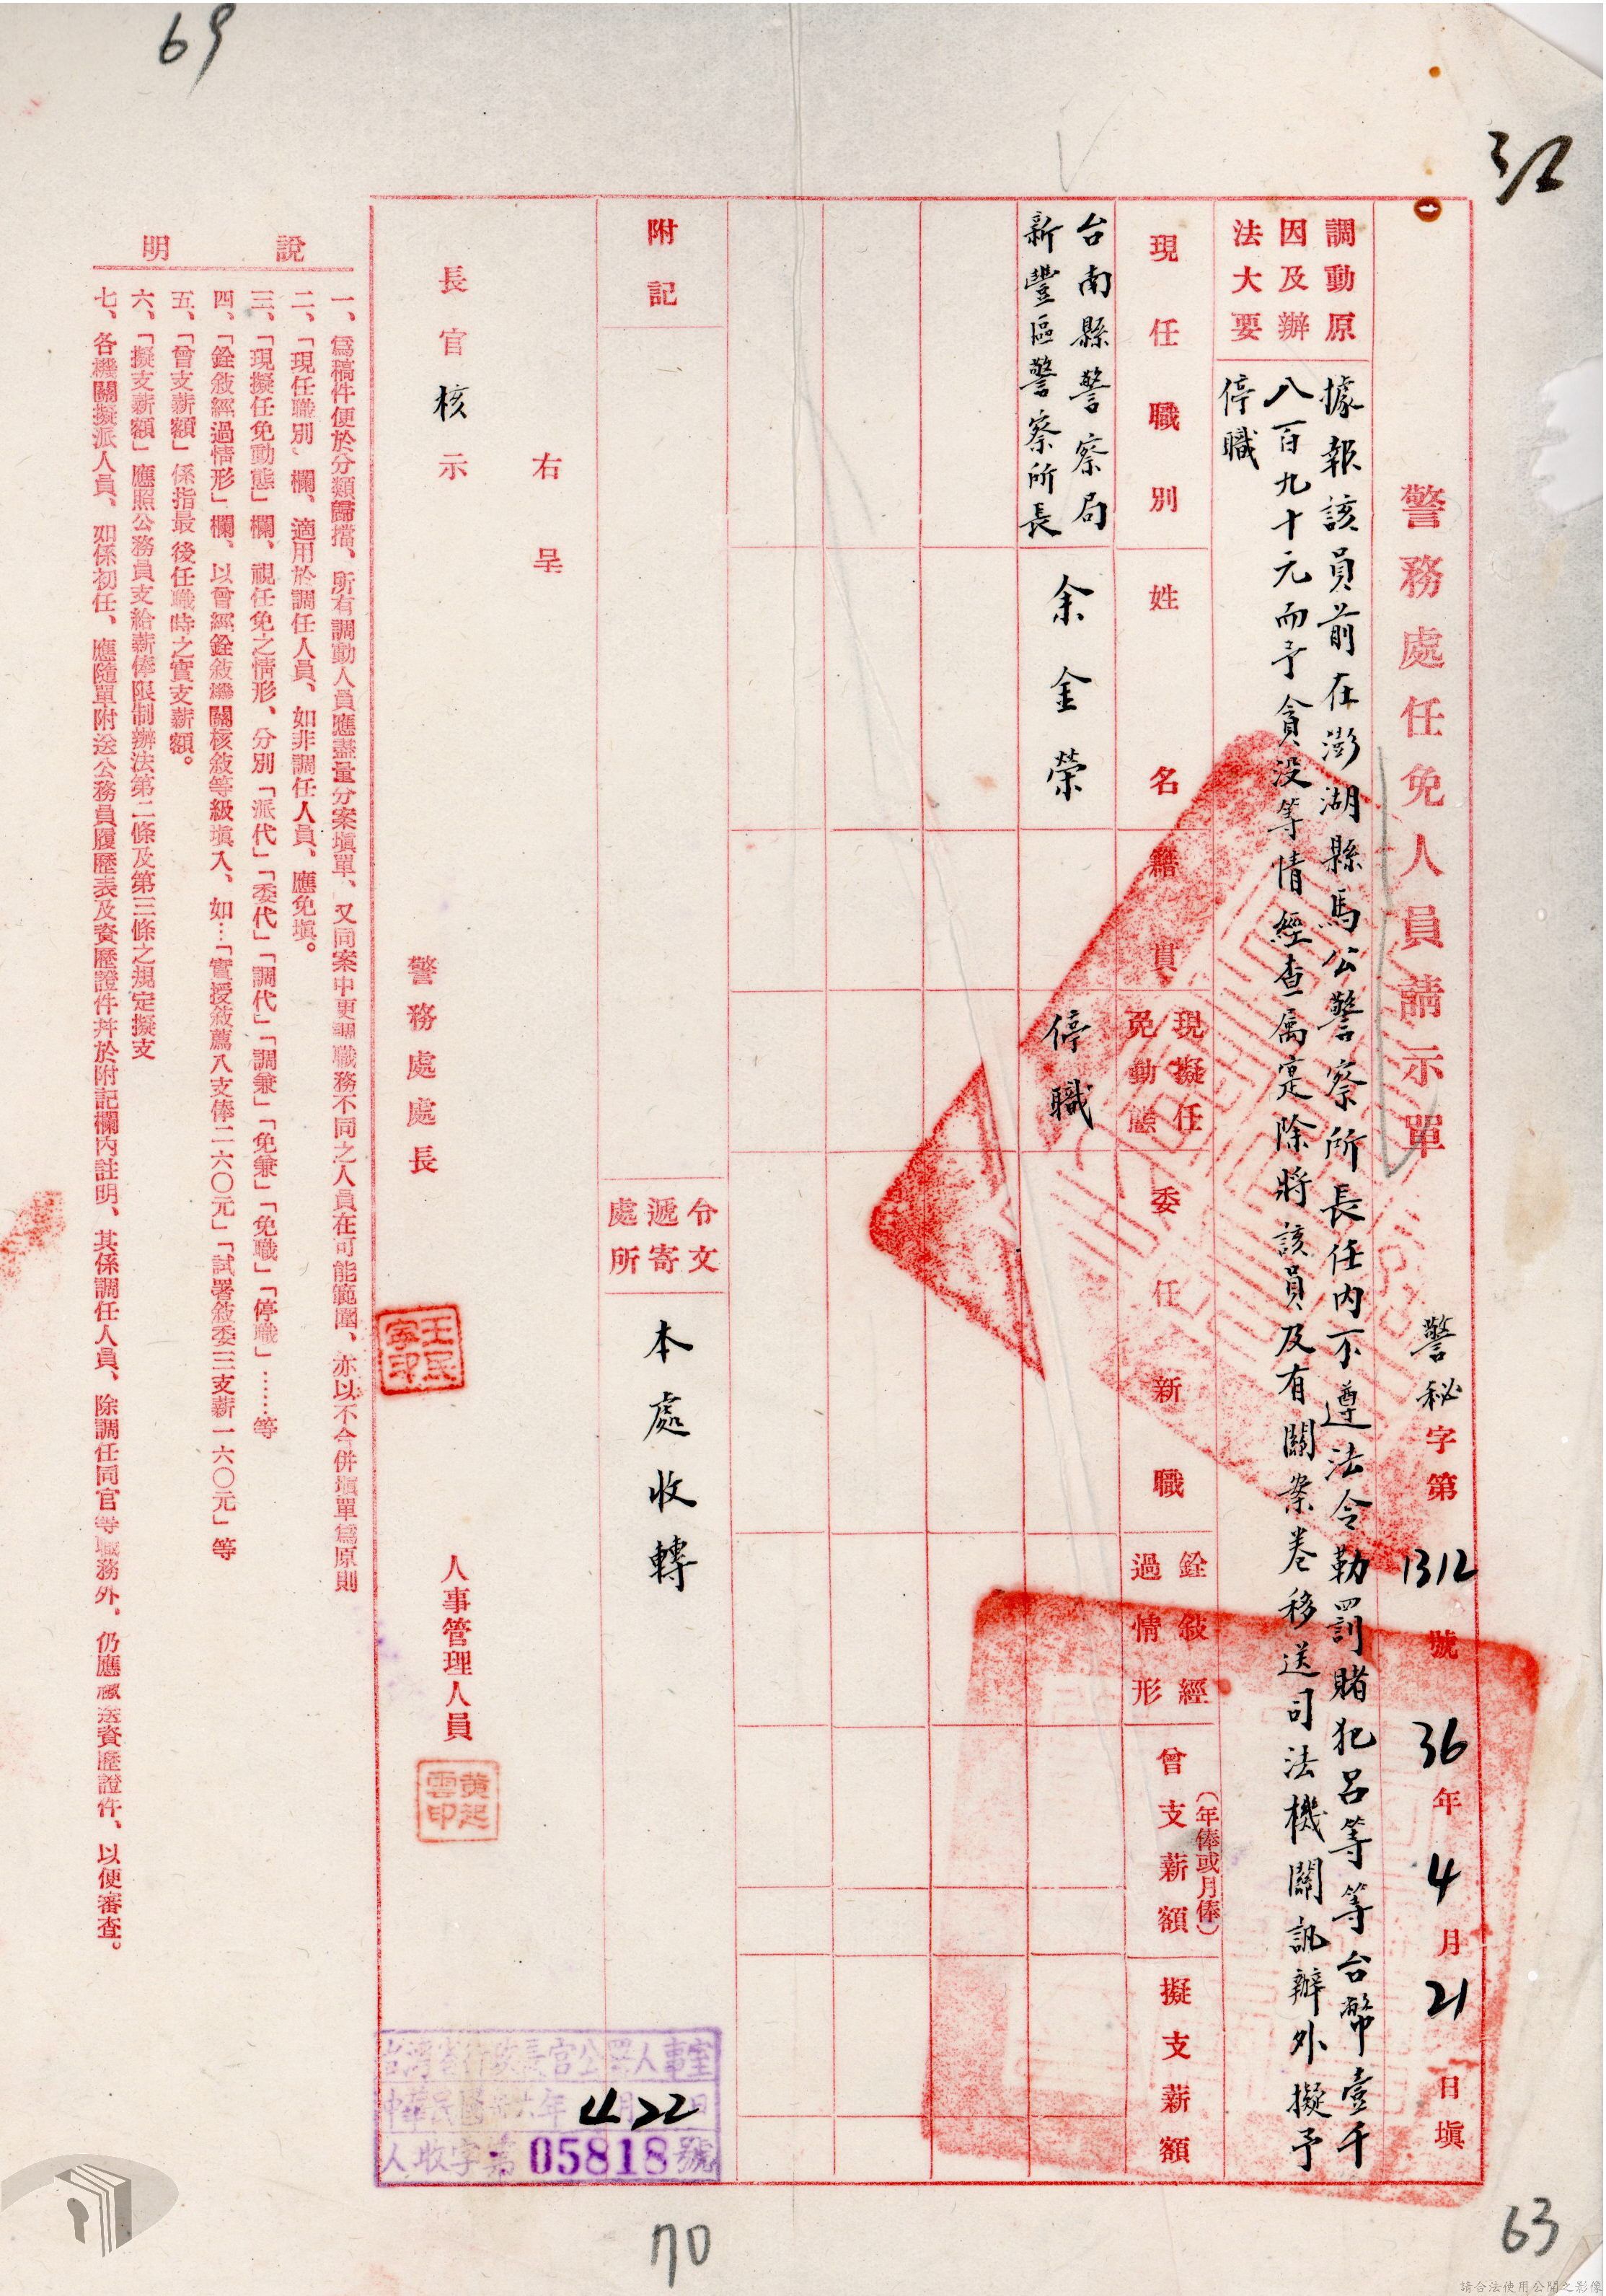 69
312
警務處任免人員請示單
警秘字第1312號
36年4月21日填
調動原因及辦法大要
據報該員前在澎湖縣馬公警察所長任內不遵法令勒罰賭犯呂等等台幣壹千
八百九十元而予貪没等情經查属寔除將該員及有關案卷移送司法機關訊辦外擬予
停職
現任職別
姓名
籍貫
現擬任免動態
委任新職
銓敍經過情形
曾支薪額
(年俸或月俸)
擬支薪額
台南縣警察局
新豐區警察所長
余金榮
停職
附記
令文遞寄處所
本處收轉
右呈
長官核示
警務處處長
王民寧印
人事管理人員
黃起雲印
台灣省行政長官公署人事室
中華民國卅六年4月22日
人收字第05818號
說明
一、為稿件便於分類歸擋、所有調動人員應盡量分案填單、又同案中更調職務不同之人員在可能範圍、亦以不合併填單為原則
二、「現任職別」欄、適用於調任人員、如非調任人員、應免填。
三、「現擬任免動態」欄、視任免之情形、分別「派代」「委代」「調代」「調兼」「免兼」「免職」「停職」……等
四、「銓敍經過情形」欄、以曾經銓敍機關核敍等級填入、如…「實授敍薦八支俸二六〇元」「試署敍委三支薪一六〇元」等
五、「曾支薪額」係指最後任職時之實支薪額。
六、「擬支薪額」應照公務員支給薪俸限制辦法第二條及第三條之規定擬支
七、各機關擬派人員、如係初任、應隨單附送公務員履歷表及資歷證件并於附記欄內註明、其係調任人員、除調任同官等職務外，仍應檢送資歷證件、以便審查。
70
63
請合法使用公開之影像